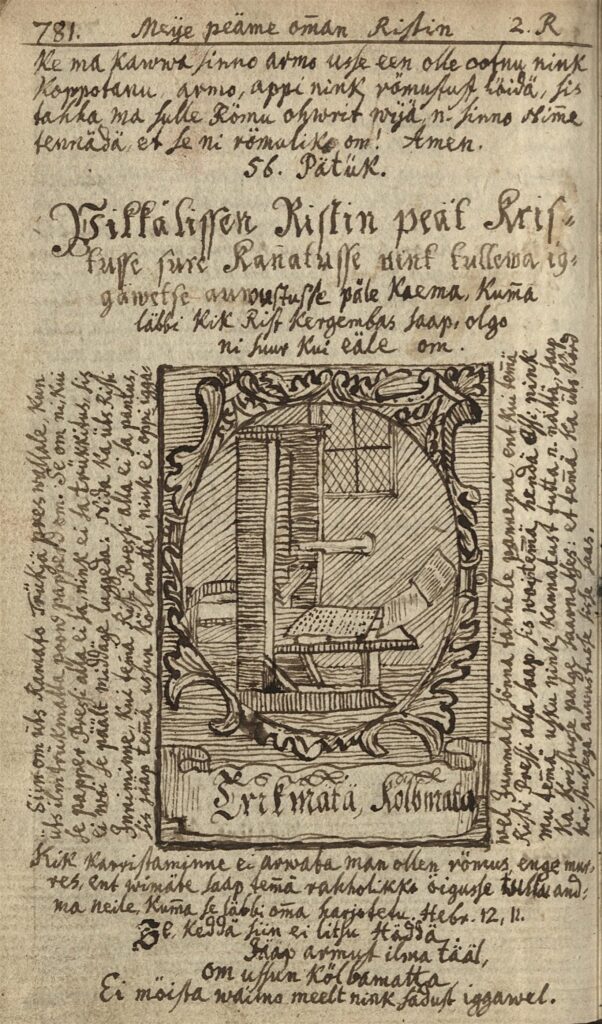 781. Meije peäme om̄an Ristin 2. R
Ke ma kawwa sinno armo usse een olle ootnu nink
Koppotanu, armo, appi nink römustust löidä, sis
tahha ma sulle Römu ohwrit wijä, n. sinno Nim̄e
tennädä, et se ni römulik om! Amen.
56. Pätük.
Pikkälissen Ristin peät Kris-
tusse sure Kan̄atusse nink tullewa ig-
gäwetse auwustusse päle Kaema, Kum̄a
läbbi kik Rist Kergembas saap, olgo
ni suur kui eäle om.
Siin om üts Ramato Trükjä pres wallale, Kun
üts ilm trükmatta poord papperd om. Se om ni, kui
se papper Pressi alla ei sa, nink ei sa trukkitus, sis
ei woi se päält middäge luggeda: Nida ka üts Risti
Inniminne, kui tem̄ä Risti Pressi alla ei sa pantus,
sis jääp tem̄ä ussun kölbmatta nink ei oppi igga-
wel Jummala sönna tähhele pannema, ent kui tem̄ä
Risti Pressi alla saap, sis woip tem̄ä hendä essi nink
mu tem̄ä usku nink kannatust tutta n. nättä, saap
ka Kristusse palge saarnatses: et tem̄ä ka üts kord
Kristussega auwustusse sisse saas.
Trikmätä, Kölbmata
Kik karristaminne ei arwata man ollen römus, enge mur-
res, ent wimäte saap tem̄ä rahholikko öigusse tullu and-
ma neile, Kum̄a se läbbi om̄a harjotetu. Hebr. 12, 11.
Se, keddä siin ei litsu Häddä
Jääp armust ilma tääl,
om ussun kölbamatta
Ei möista waimo meelt nink sädust iggäwel.